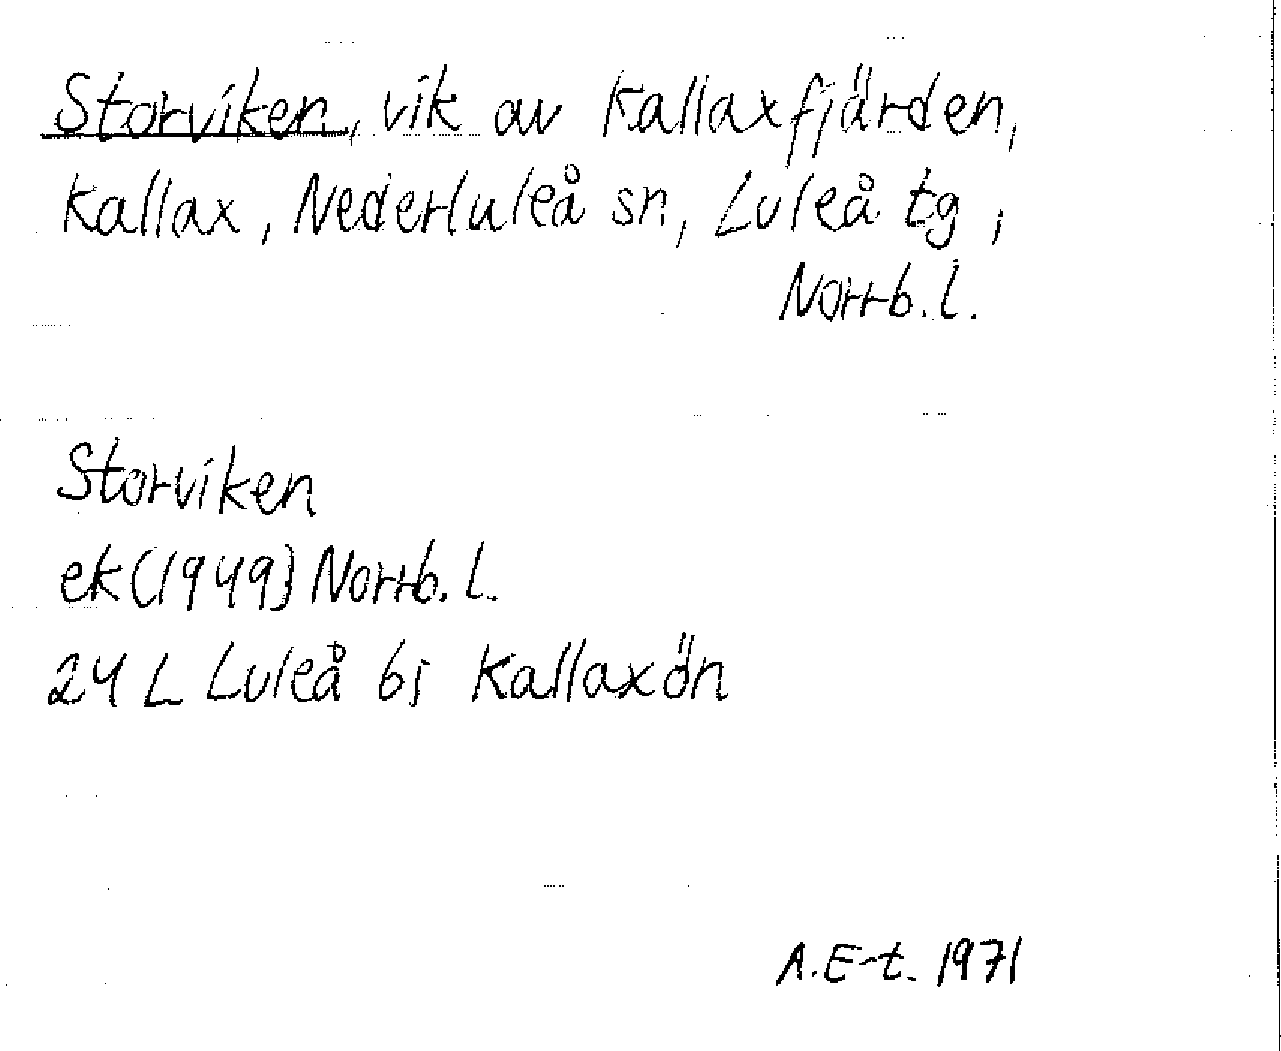 Storviken, vik av Kallaxfjärden,
Kallax, Nederluleå sn, Luleå tg,
Norrb. l.
Storviken
ek (1949) Norrb. l.
24 L Luleå 6j Kallaxön
A.E-t. 1971